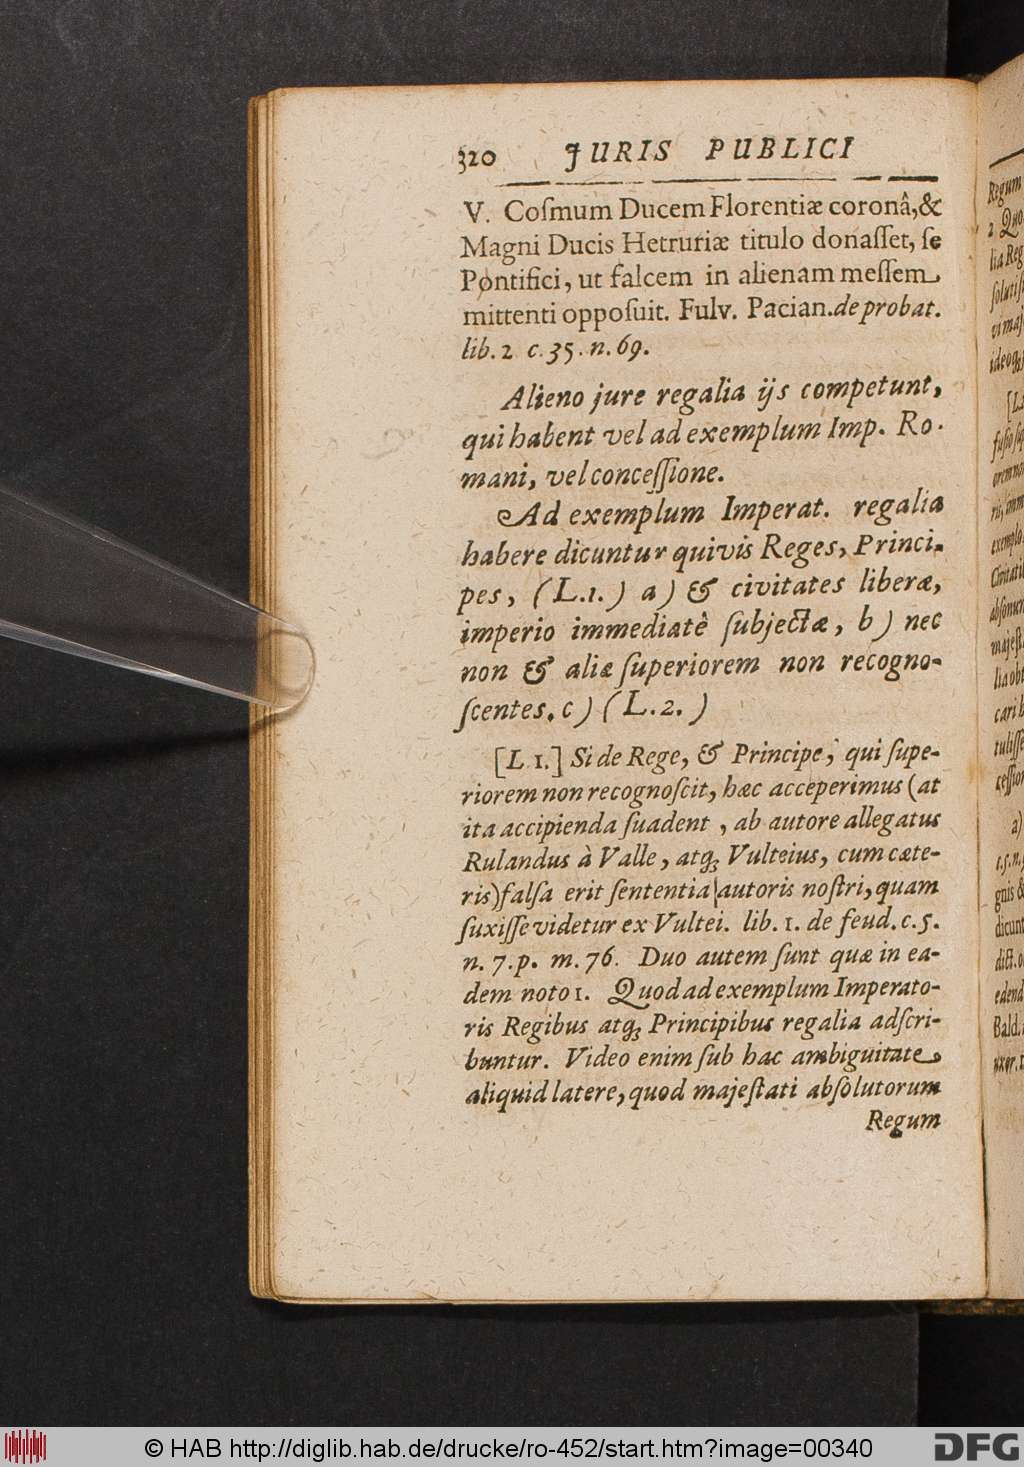 320 JURIS PUBLICI
V. Coſmum Ducem Florentiæ coronâ, &
Magni Ducis Hetruriæ titulo donaſſet, ſe
Pontifici, ut falcem in alienam meſſem
mittenti oppoſuit. Fulv. Pacian. de probat.
lib. 2 c. 35. n. 69.
Alieno jure regalia ijs competunt,
qui habent vel ad exemplum Imp. Ro-
mani, vel conceſſione.
Ad exemplum Imperat. regalia
habere dicuntur quivis Reges, Princi-
pes, (L.1.) a) & civitates liberæ,
imperio immediatè ſubjectæ, b) nec
non & aliæ ſuperiorem non recogno-
ſcentes. c) (L.2.)
[L 1.] Si de Rege, & Principe, qui ſupe-
riorem non recognoſcit, hæc acceperimus (at
ita accipienda ſuadent, ab autore allegatus
Rulandus à Valle, atq; Vulteius, cum cæte-
ris) falſa erit ſententia autoris noſtri, quam
ſuxiſſe videtur ex Vultei. lib. 1. de feud. c. 5.
n. 7. p. m. 76. Duo autem ſunt quæ in ea-
dem noto 1. Quod ad exemplum Imperato-
ris Regibus atq; Principibus regalia adſcri-
buntur. Video enim ſub hac ambiguitate
aliquid latere, quod majeſtati abſolutorum
Regum
Regum
2 Quo
lia Reg
ideoq;
[L.
a)
dicunt
Bald.
© HAB http://diglib.hab.de/drucke/ro-452/start.htm?image=00340
DFG